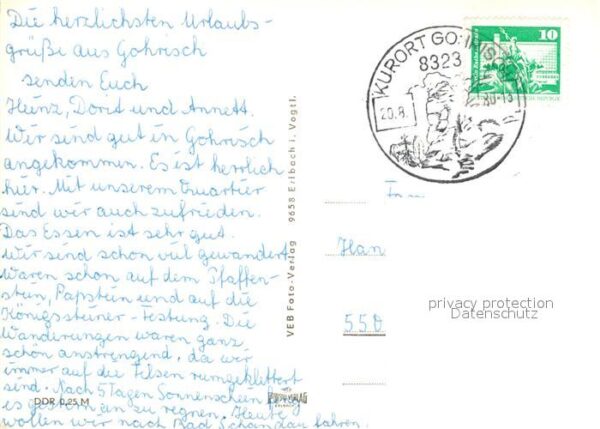 Die herzlichsten Urlaubs-
grüße aus Gohrisch
senden Euch
Heinz, Dorit und Annett.
Wir sind gut in Gohrisch
angekommen. Es ist herrlich
hier. Mit unserem Quartier
sind wir auch zufrieden.
Das Essen ist sehr gut.
Wir sind schon viel gewandert
waren schon auf dem Pfaffen-
stein, Papstein und auf die
Königssteiner-Festung. Die
Wanderungen waren ganz
schön anstrengend, da wir
immer auf die Felsen rumgeklettert
sind. Nach 5 Tagen Sonnenschein
es gestern an zu regnen. Heute
wollen wir nach Bad Schandau fahren.
DDR 0,25 M
VEB Foto-Verlag 9658 Erlbach i. Vogtl.
KURORT GOHRISCH
8323
20.8.
80-13
10
Han
550
privacy protection
Datenschutz